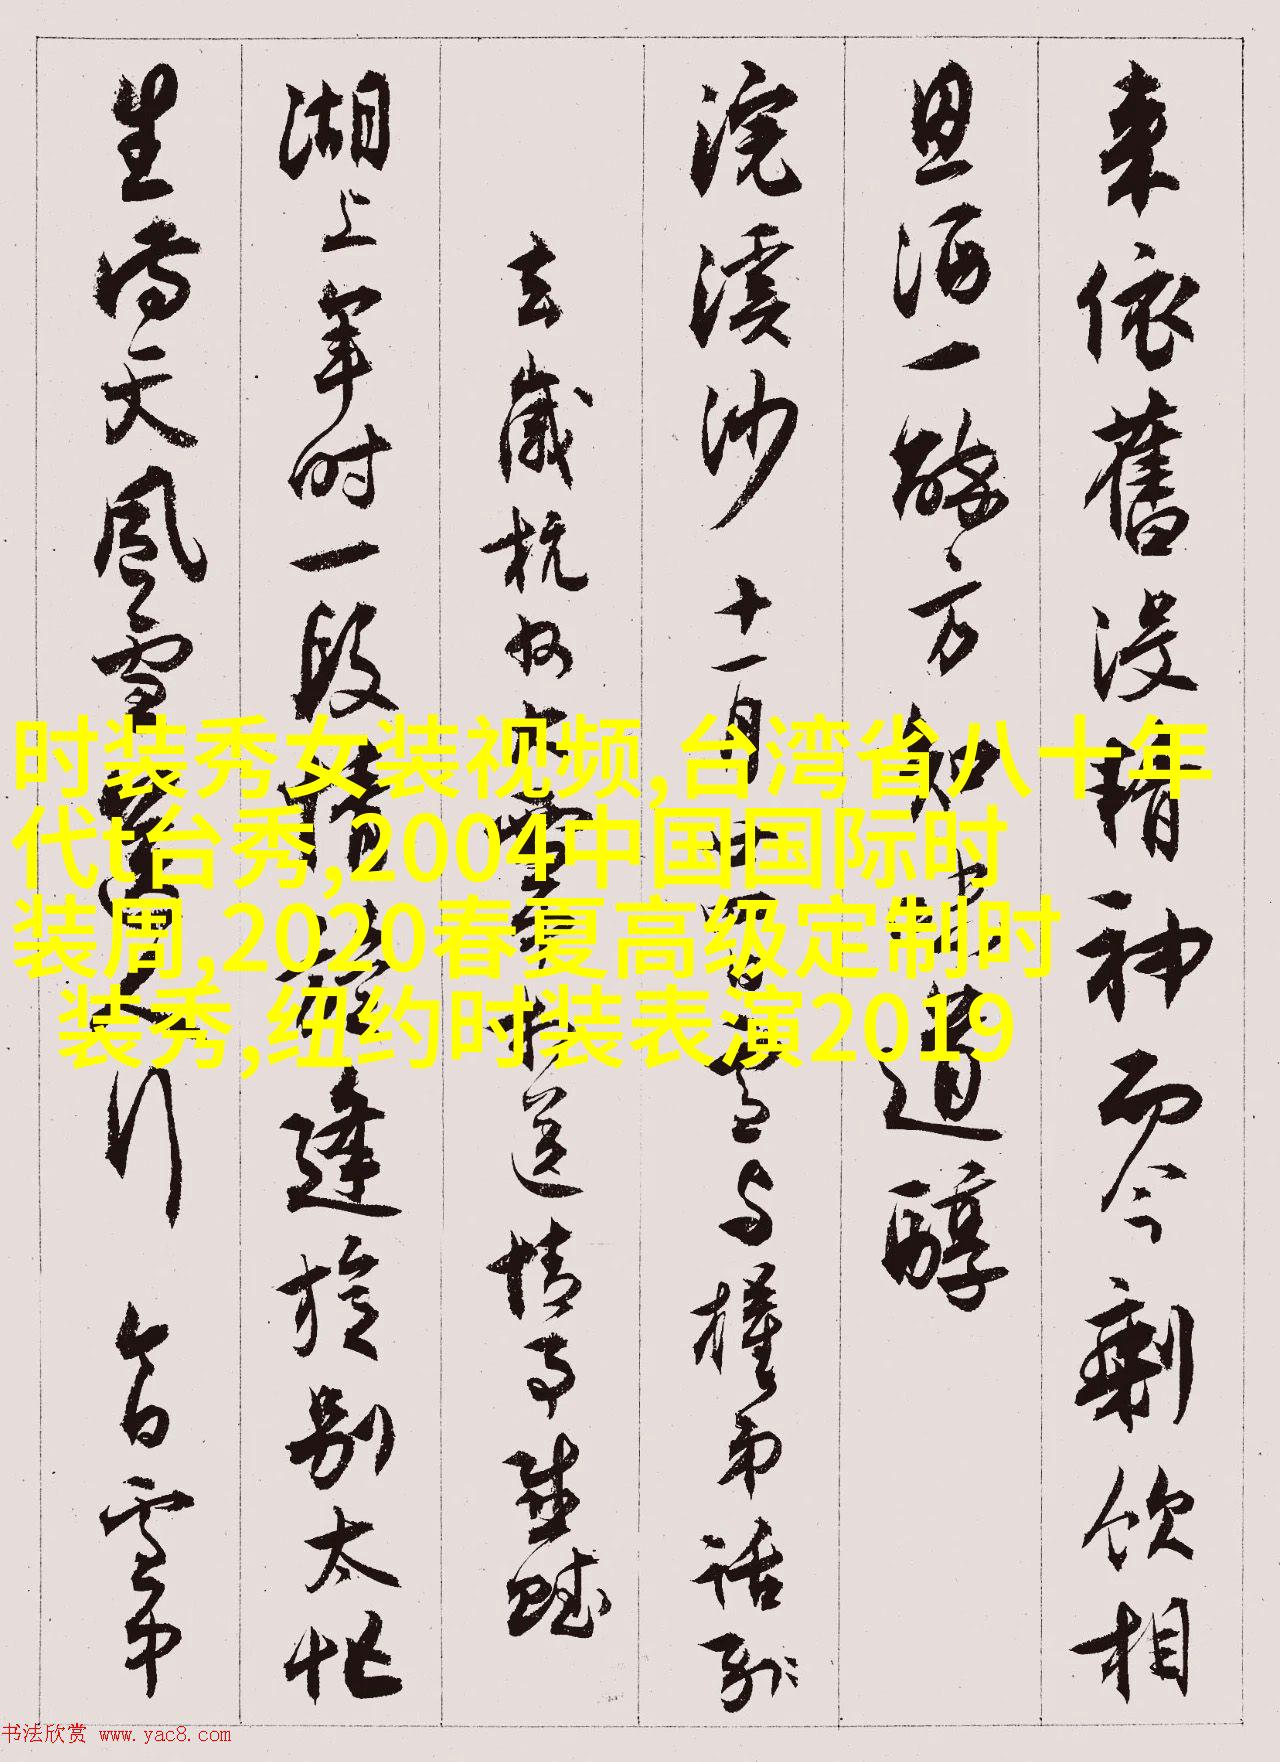 来依舊没精神而今剩飲相
恩酒一醉方知道醇
浣溪沙十一月与權弟話别
去歲杭州亦雪送情事賦
湖上年时一段情逢旋别太忙
生憎天風雪人行今日雪中
时装秀女装视频,台湾省八十年
代t台秀,2004中国国际时
装周,2020春夏高级定制时
装秀,纽约时装表演2019
书法欣赏 www.yac8.com